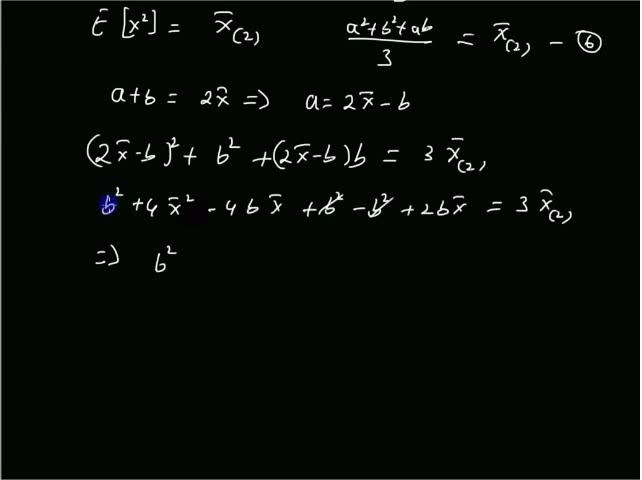 E [x²] = x̄₍₂₎   (a²+b²+ab)/3 = x̄₍₂₎ – ⑥
a+b = 2x̄ => a = 2x̄ – b
(2x̄-b)² + b² + (2x̄-b)b = 3 x̄₍₂₎
b² + 4x̄² - 4bx̄ + b² - b² + 2bx̄ = 3 x̄₍₂₎
=> b²